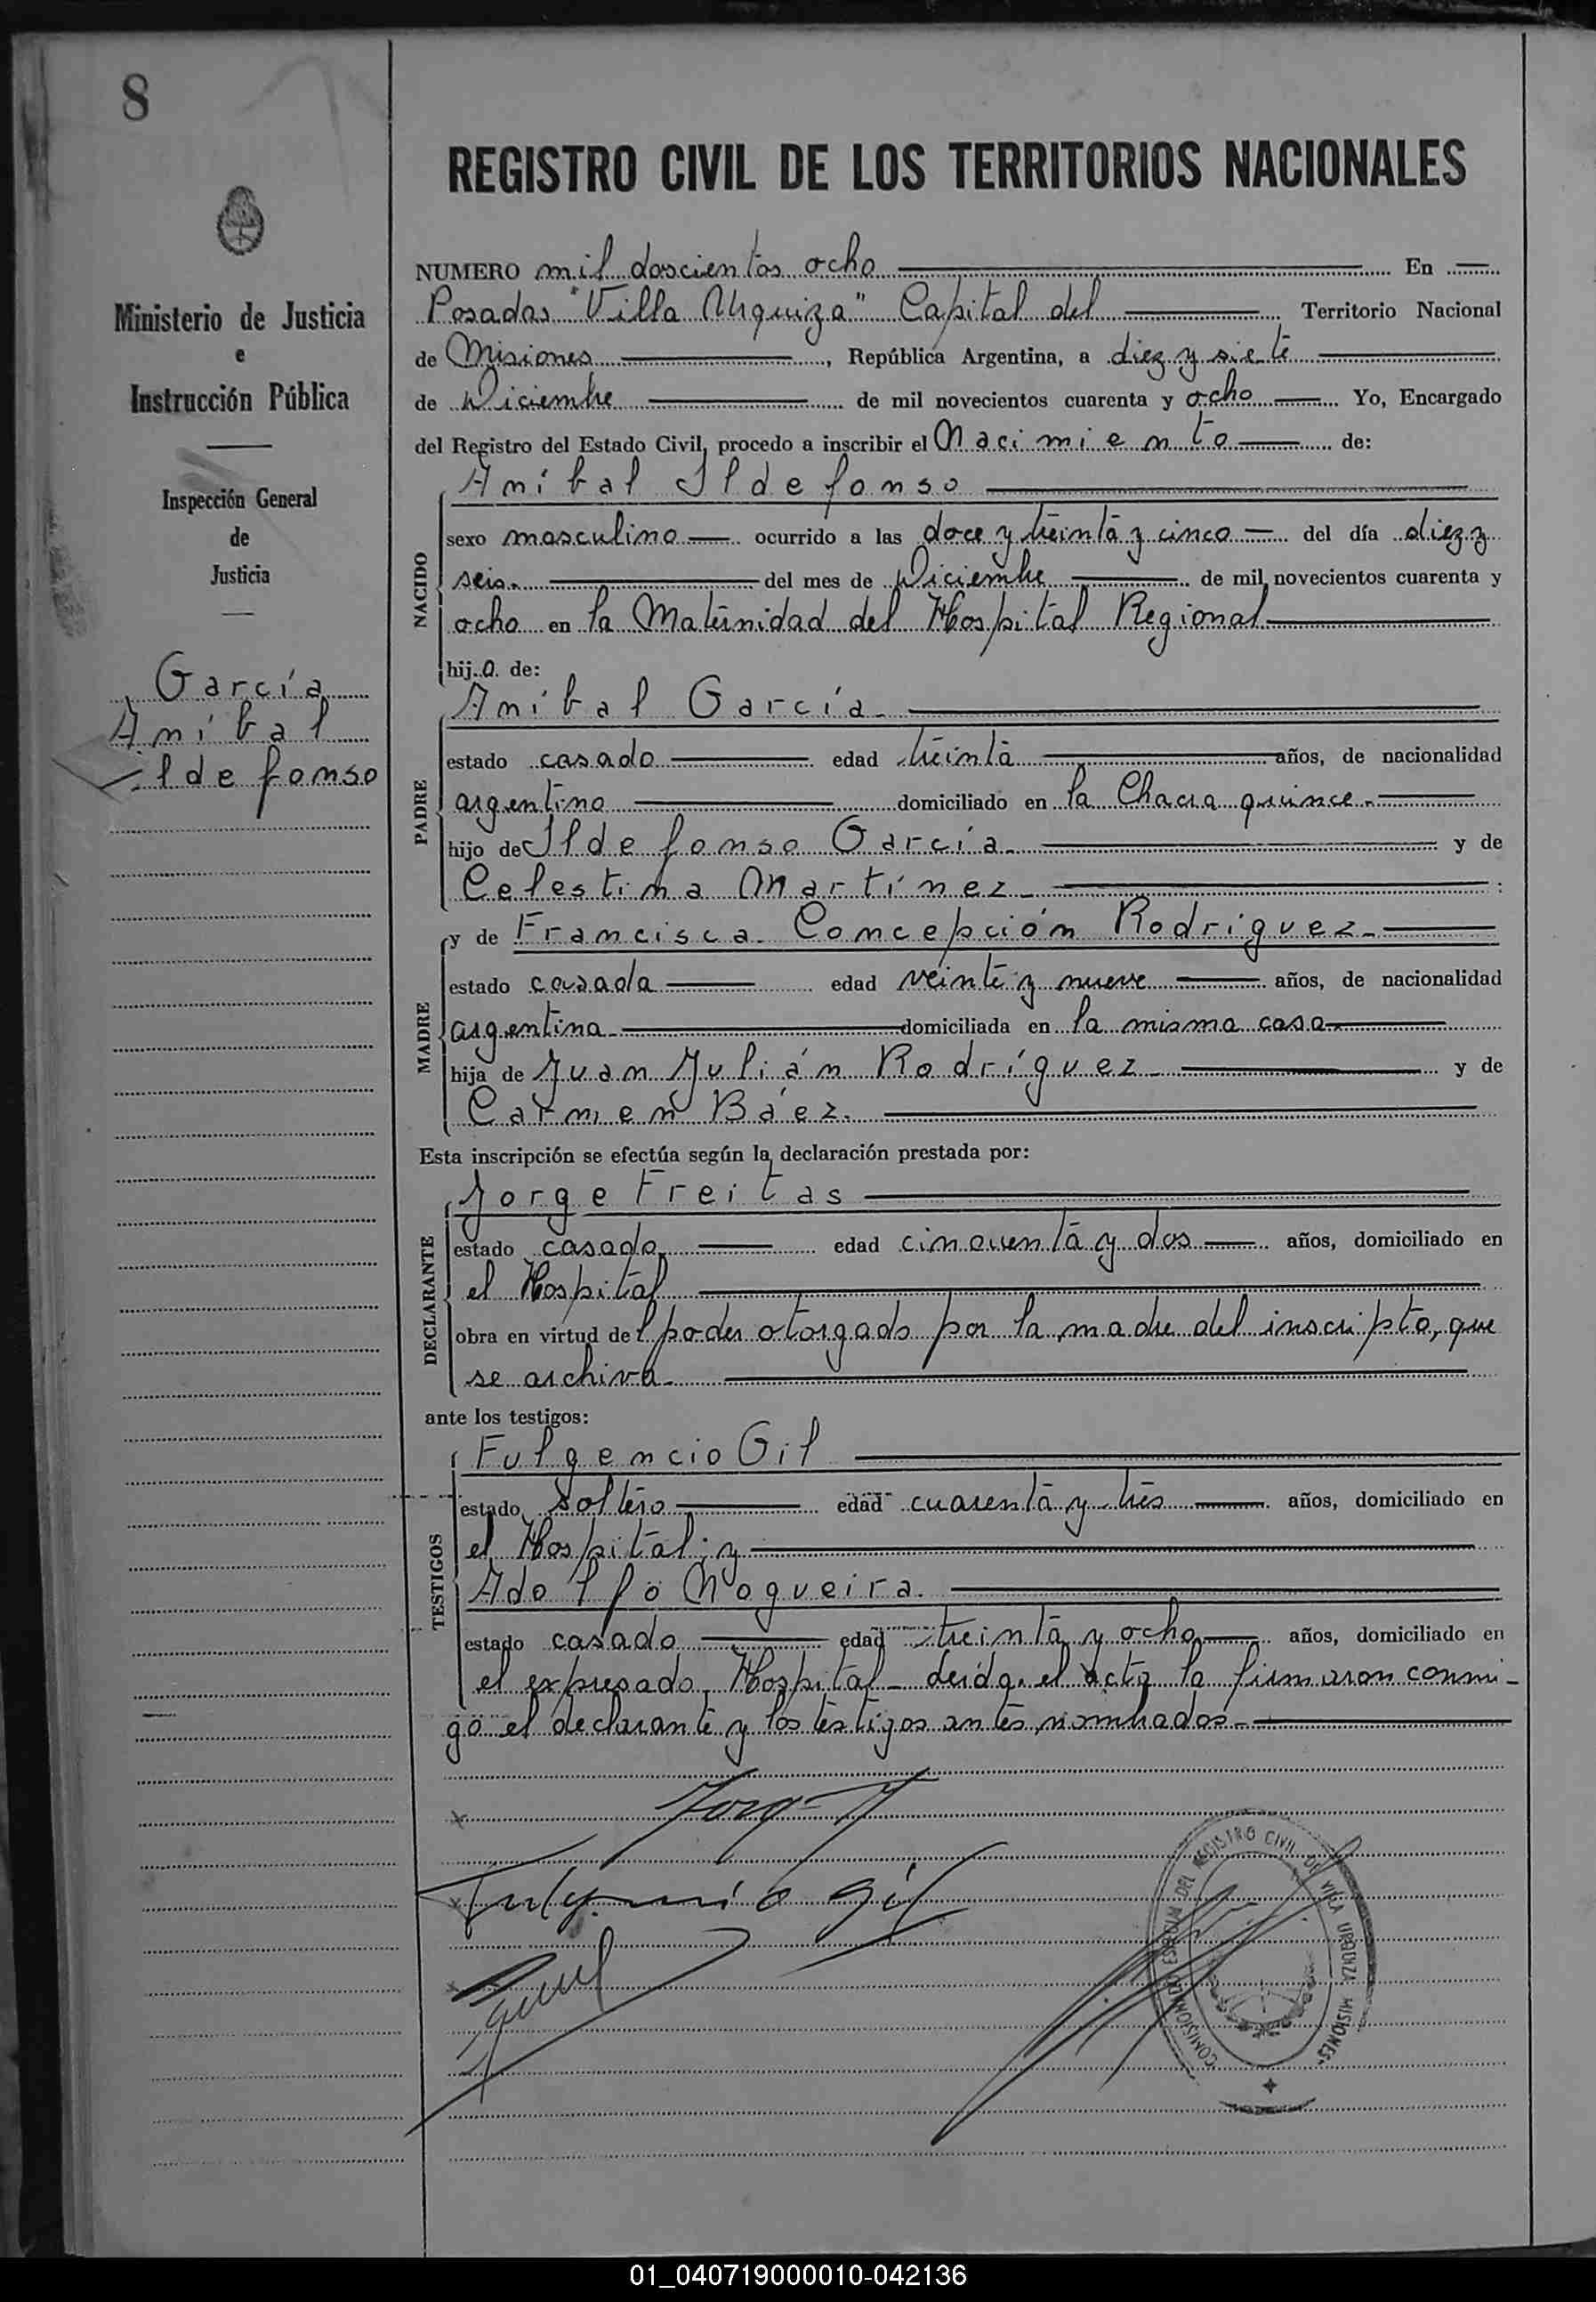 8
REGISTRO CIVIL DE LOS TERRITORIOS NACIONALES
Ministerio de Justicia
e
Instrucción Pública
Inspección General
de
Justicia
García
Aníbal
Ildefonso
NUMERO mil doscientos ocho En
Posadas "Villa Urquiza" Capital del Territorio Nacional
de Misiones, República Argentina, a diez y siete
de Diciembre de mil novecientos cuarenta y ocho Yo, Encargado
del Registro del Estado Civil, procedo a inscribir el Nacimiento de:
NACIDO
Aníbal Ildefonso
sexo masculino ocurrido a las doce y treinta y cinco del día diez y
seis. del mes de Diciembre de mil novecientos cuarenta y
ocho en la Maternidad del Hospital Regional
hijo de:
PADRE
Aníbal García
estado casado edad treinta años, de nacionalidad
argentino domiciliado en la Chacra quince.
hijo de Ildefonso García y de
Celestina Martínez :
MADRE
y de Francisca Concepción Rodríguez
estado casada edad veinte y nueve años, de nacionalidad
argentina domiciliada en la misma casa
hija de Juan Julián Rodríguez y de
Carmen Báez.
Esta inscripción se efectúa según la declaración prestada por:
DECLARANTE
Jorge Freitas
estado casado edad cincuenta y dos años, domiciliado en
el Hospital
obra en virtud del poder otorgado por la madre del inscripto, que
se archiva
ante los testigos:
TESTIGOS
Fulgencio Gil
estado soltero edad cuarenta y tres años, domiciliado en
el Hospital; y
Adolfo Nogueira.
estado casado edad treinta y ocho años, domiciliado en
el expresado Hospital - leída el acta la firmaron conmi-
go el declarante y los testigos antes nombrados
Fulgencio Gil
COMISIONADO ESPECIAL DEL REGISTRO CIVIL DE VILLA URQUIZA MISIONES
01_040719000010-042136